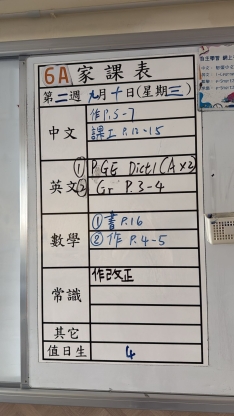 6A 家課表
第二週 九月十日(星期三)
中文
作 P.5-7
課工 P.12-15
英文
① P.GE Dict1 (A×2)
② Gr P.3-4
數學
① 書 P.16
② 作 P.4-5
常識
作改正
其它
值日生 4